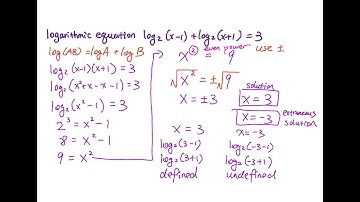 logarithmic equation log₂(x-1)+log₂(x+1)=3
log(AB)=logA+logB
log₂(x-1)(x+1)=3
log₂(x²+x-x-1)=3
log₂(x²-1)=3
2³=x²-1
8=x²-1
9=x²
even power
x²=9
use ±
√x²=±√9
x=±3
solution
x=3
x=-3
extraneous solution
x=3
log₂(3-1)
log₂(3+1)
defined
x=-3
log₂(-3-1)
log₂(-3+1)
undefined